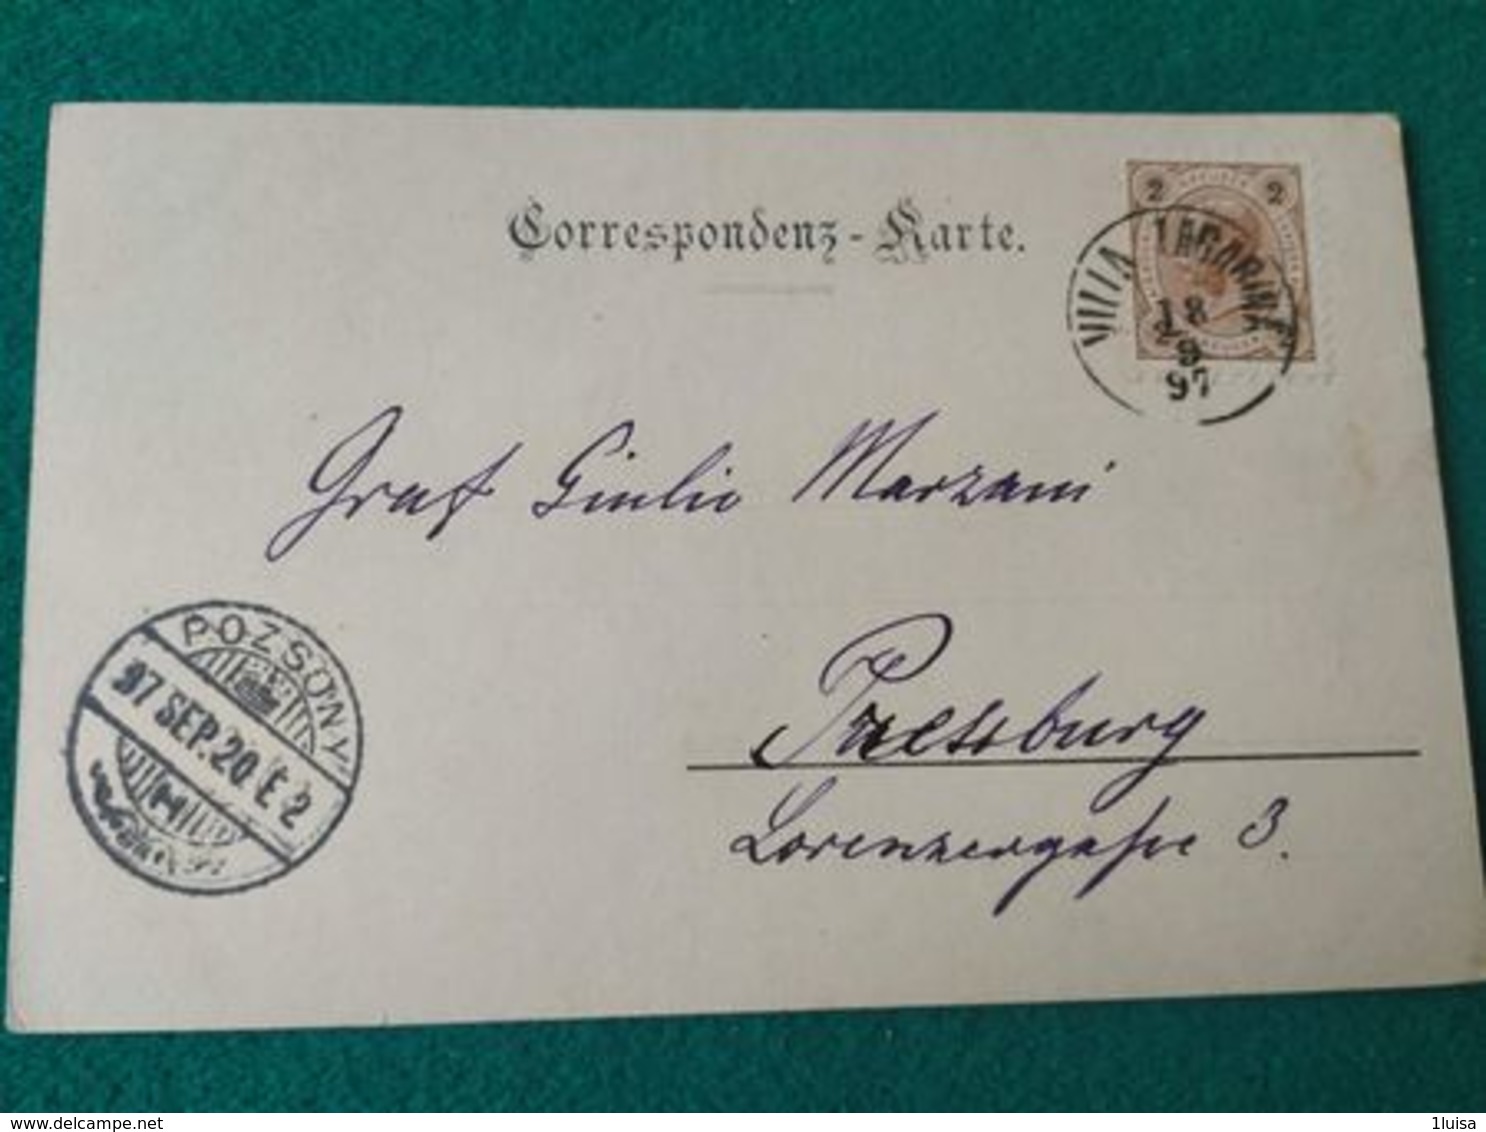 Correspondenz-Karte.
2 KREUZER 2
VILLA LAGARINA
18
9
97
Graf Giulio Marzani
POZSONY
97 SEP. 20. É 2
Pressburg
Lorenzergasse 3.
delcampe.net
1luisa